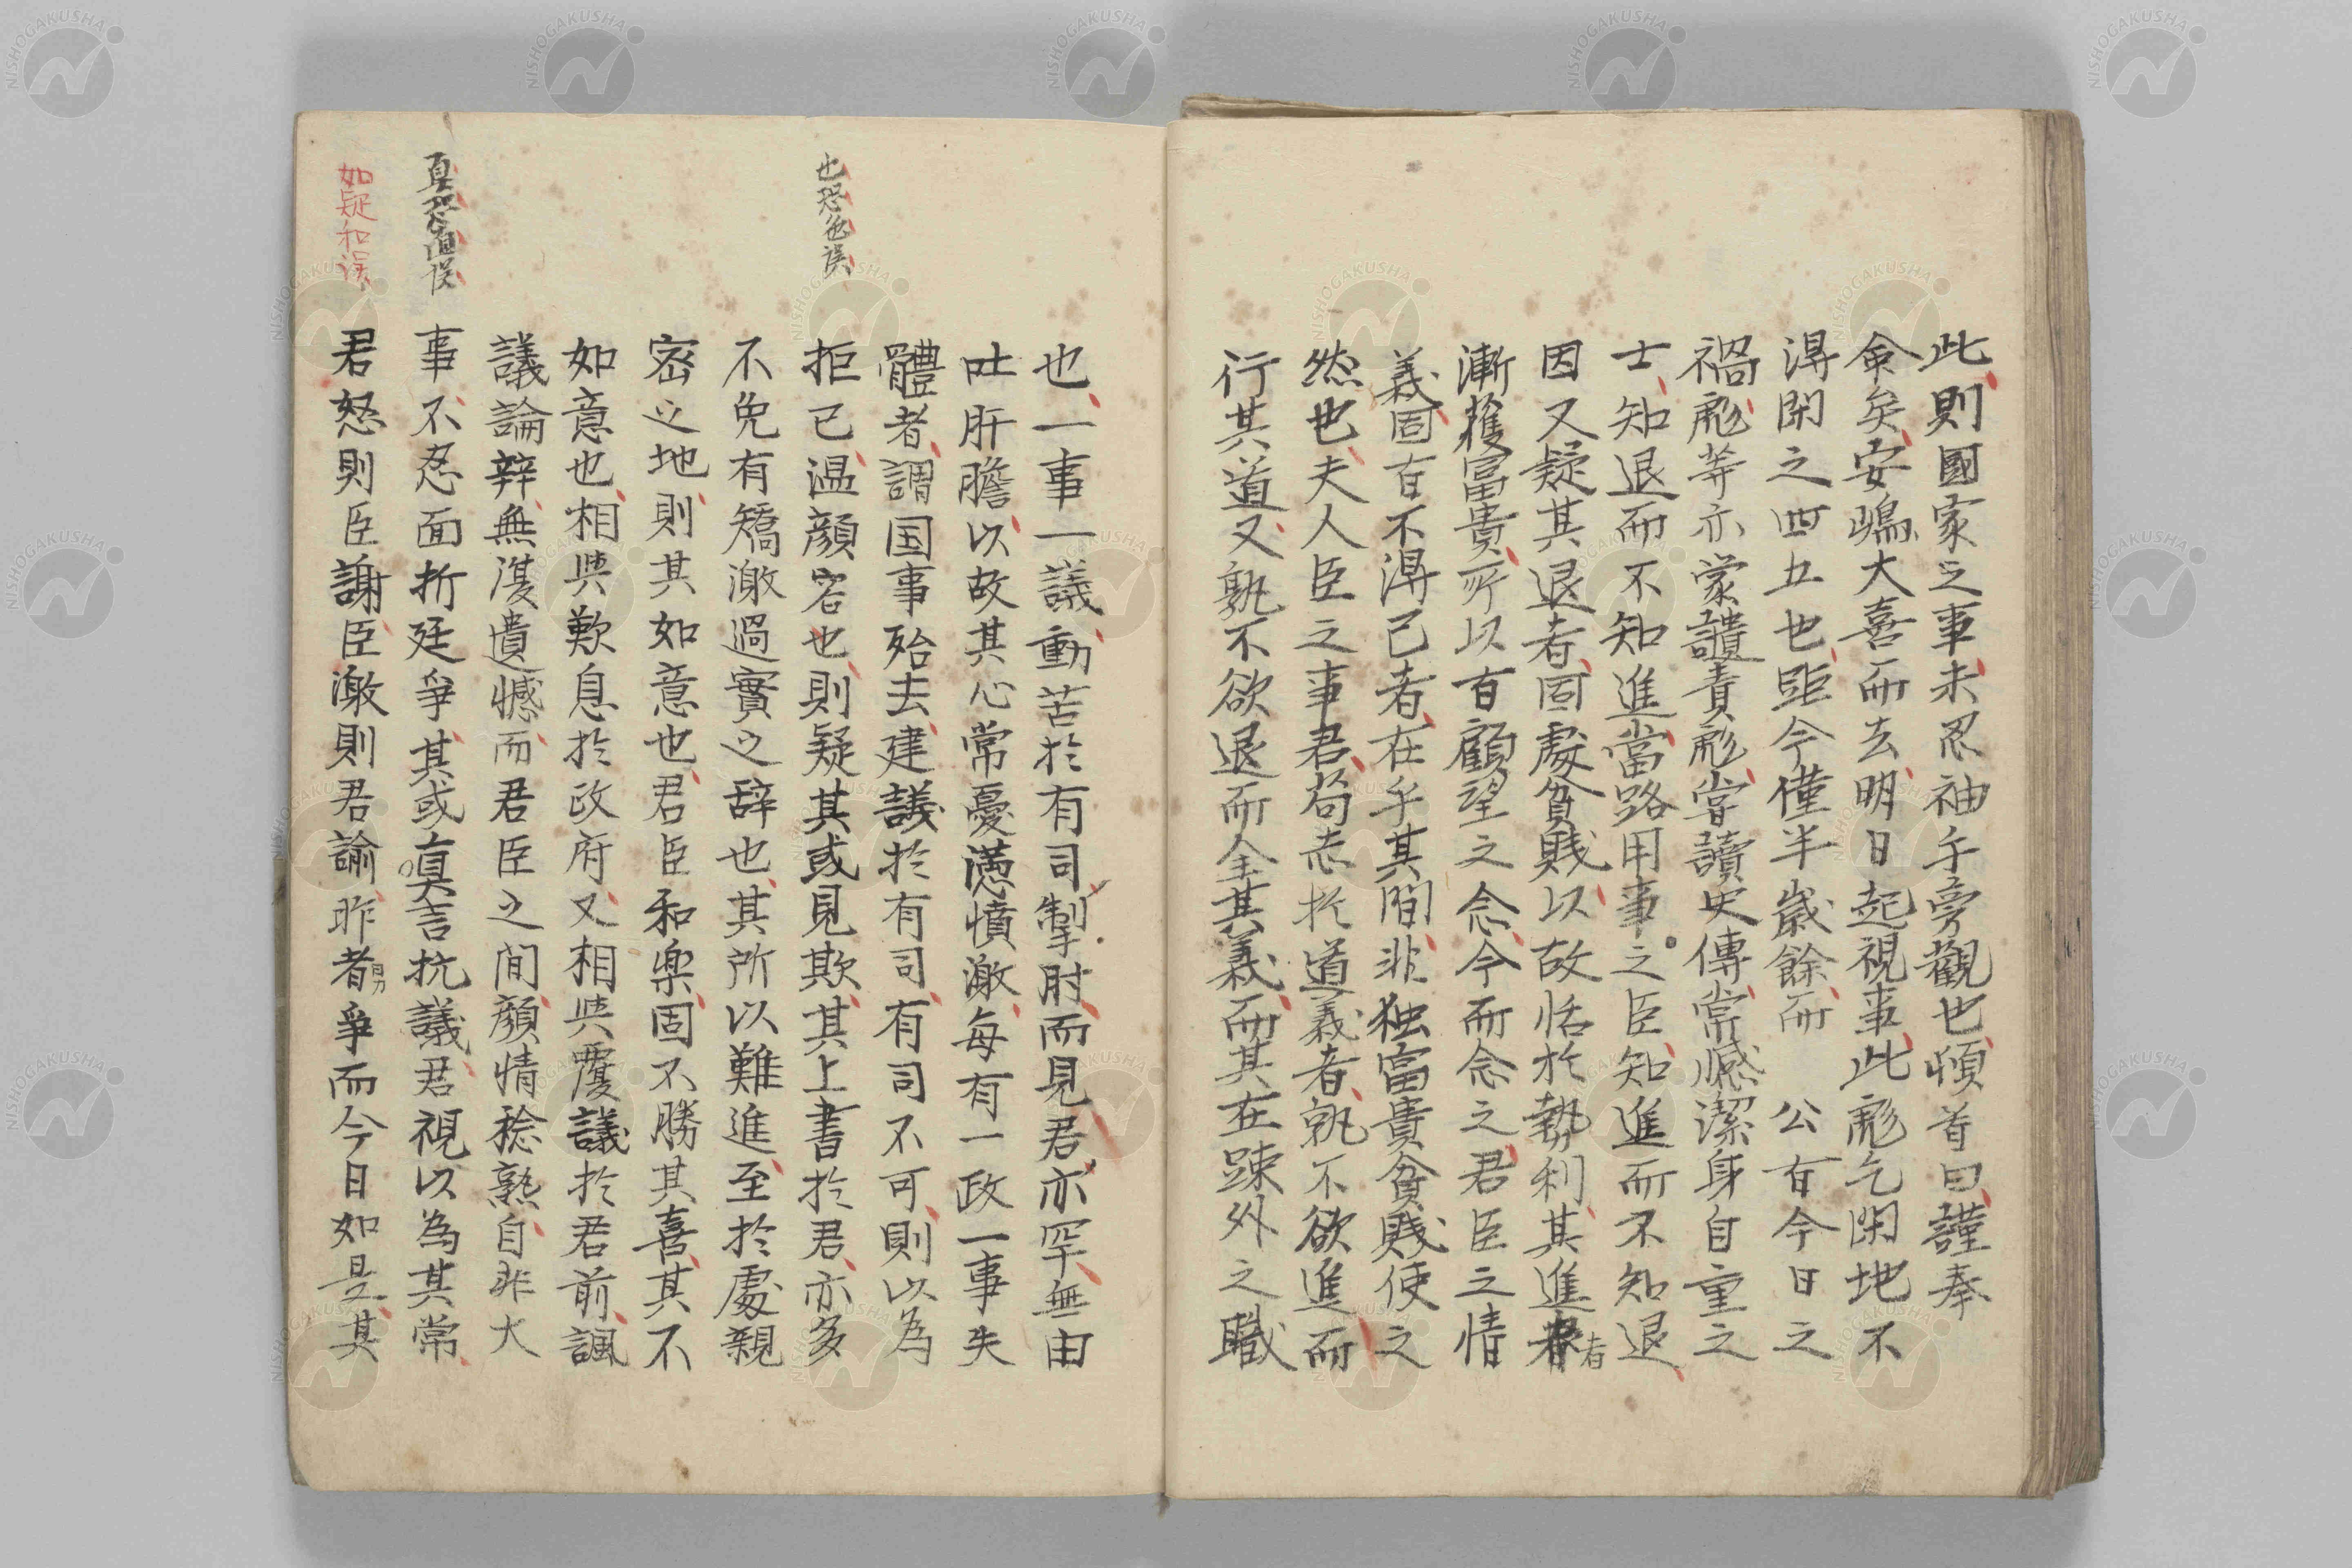 此則國家之事未忍袖手旁觀也頓首曰謹奉
命矣安鳴大喜而去明日起視事此彪乞閑地不
得閑之四五也距今僅半歲餘而 公有今日之
禍彪等亦蒙譴責彪嘗讀史傳常憾潔身自重之
士知退而不知進當路用事之臣知進而不知退
因又疑其退者固處貧賤以故恬於勢利其進者
者
漸獲富貴所以有顧望之念今而念之君臣之情
義固有不得已者在乎其間非独富貴貧賤使之
然也夫人臣之事君苟志於道義者孰不欲進而
行其道又孰不欲退而全其義而其在疎外之職
也一事一議動苦於有司掣肘而見君亦罕無由
吐肝膽以故其心常憂懣憤激每有一政一事失
體者謂国事殆去建議於有司有司不可則以為
拒已温顔容也則疑其或見欺其上書於君亦多
不免有矯激過實之辞也其所以難進至於處親
密之地則其如意也君臣和楽固不勝其喜其不
如意也相與歎息於政府又相與覆議於君前諷
議論辩無復遺憾而君臣之間顔情稔熟自非大
事不忍面折廷争其或真言抗議君視以為其常
君怒則臣謝臣激則君諭昨者爭而今日如是其
也恐色誤
真恐直誤
如疑和誤